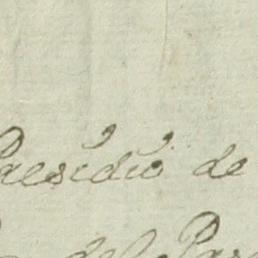 Presidio de
del Par